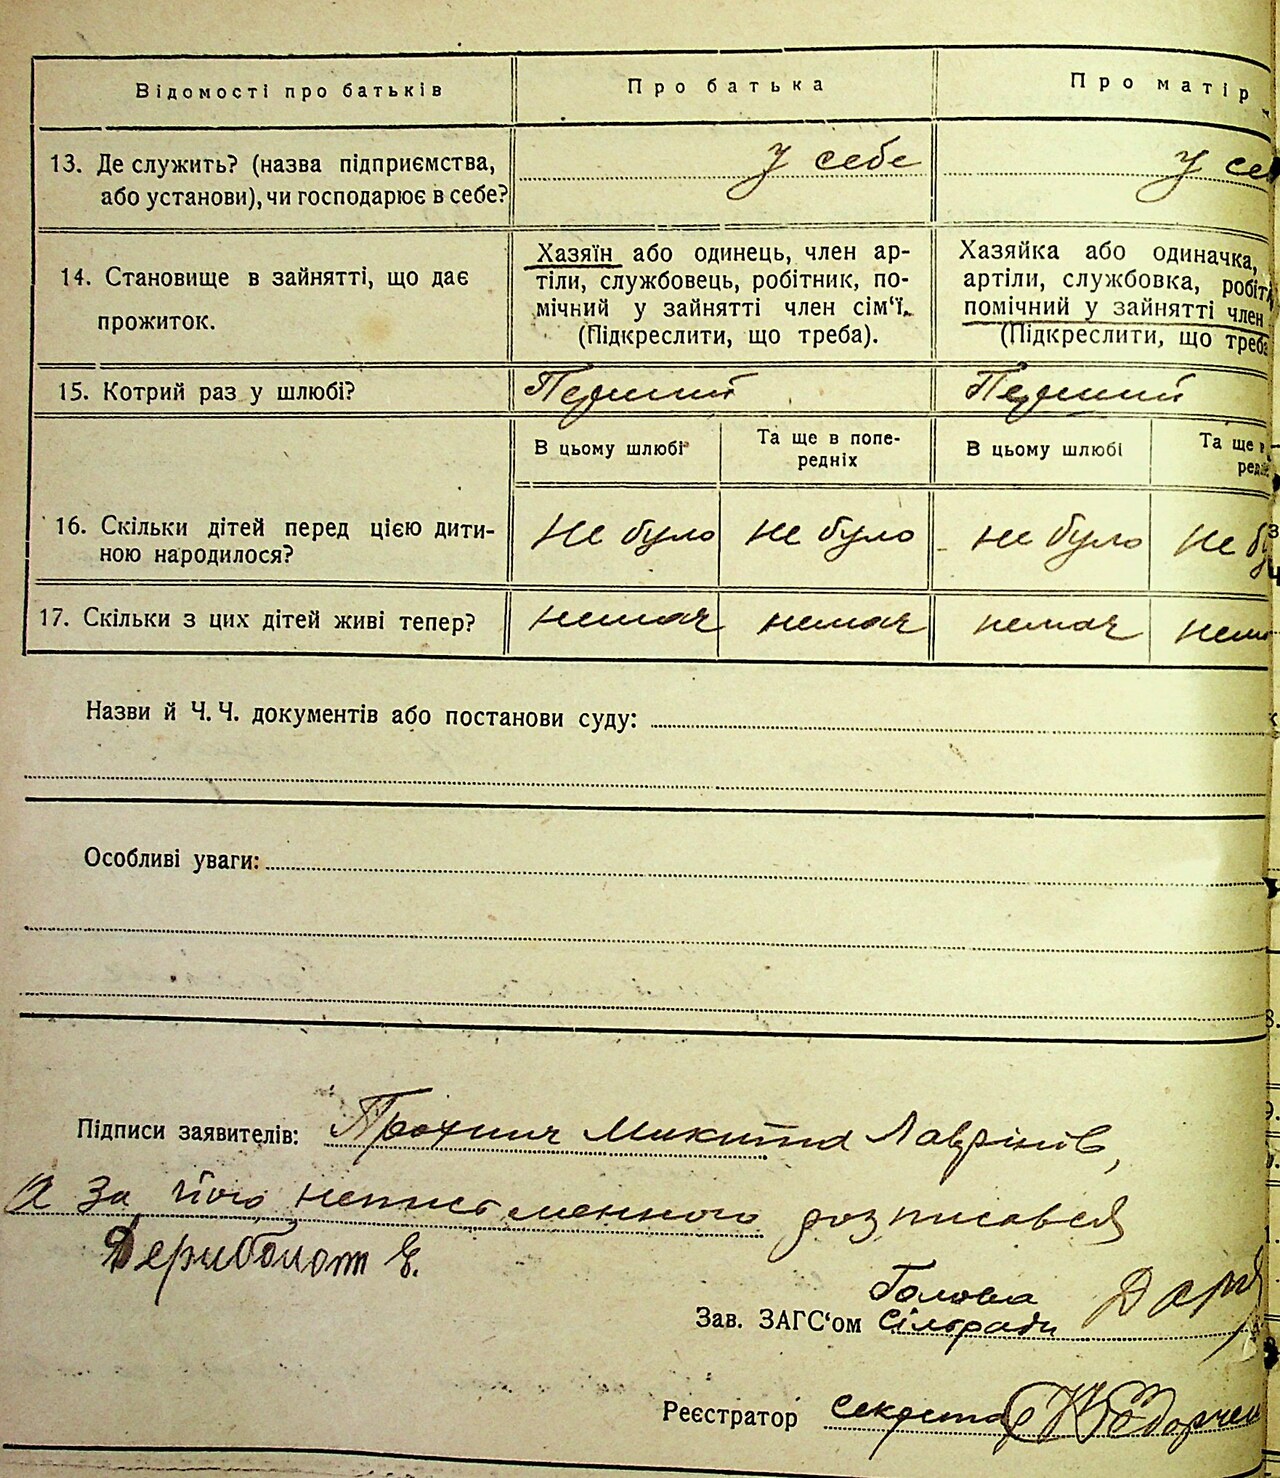 Відомості про батьків
Про батька
Про матір
13. Де служить? (назва підприємства,
або установи), чи господарює в себе?
У себе
У се
14. Становище в зайнятті, що дає
прожиток.
Хазяїн або одинець, член ар-
тіли, службовець, робітник, по-
мічний у зайнятті член сім'ї.
(Підкреслити, що треба).
Хазяйка або одиначка,
артіли, службовка, робіт
помічний у зайнятті член
(Підкреслити, що треба
15. Котрий раз у шлюбі?
Перший
Перший
В цьому шлюбі
Та ще в попе-
редніх
В цьому шлюбі
Та ще в
редні
16. Скільки дітей перед цією дити-
ною народилося?
Не було
не було
не було
не бу
17. Скільки з цих дітей живі тепер?
немає
немає
немає
нем
Назви й Ч. Ч. документів або постанови суду:
Особливі уваги:
Підписи заявителів: Микита Лаврінов,
а за його неписьменного розписався
Дериболот Є.
Голова
Зав. ЗАГС'ом Сільради
Реєстратор секретар